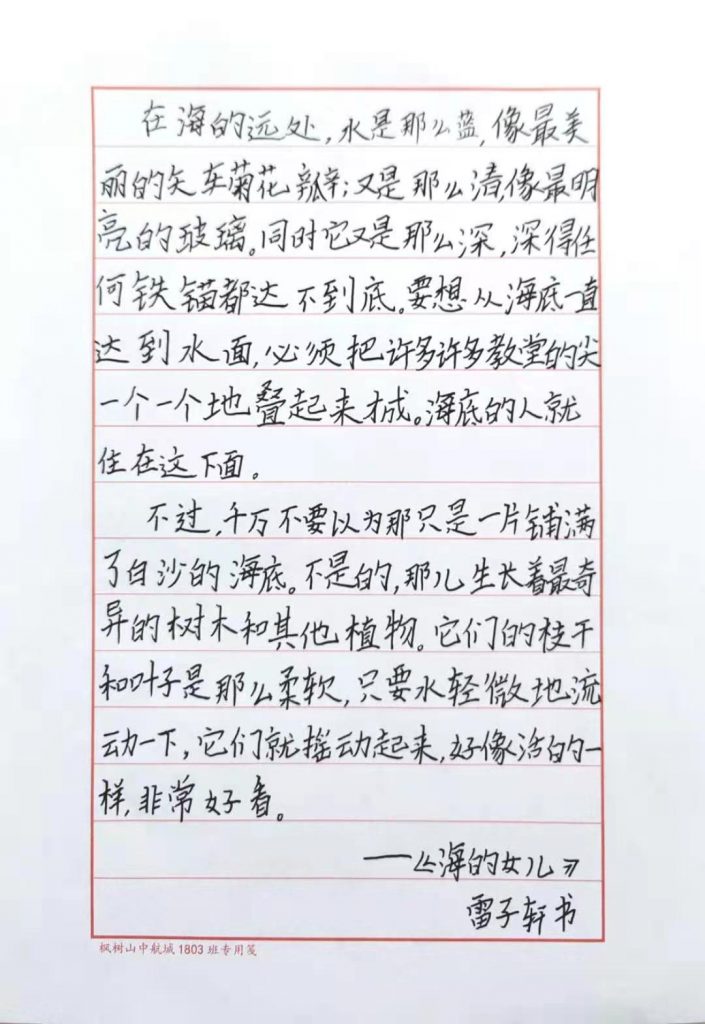 在海的远处,水是那么蓝,像最美
丽的矢车菊花瓣;又是那么清,像最明
亮的玻璃。同时它又是那么深,深得任
何铁锚都达不到底。要想从海底一直
达到水面,必须把许多许多教堂的尖
一个一个地叠起来才成。海底的人就
住在这下面。
不过,千万不要以为那只是一片铺满
了白沙的海底。不是的,那儿生长着最奇
异的树木和其他植物。它们的枝干
和叶子是那么柔软,只要水轻微地流
动一下,它们就摇动起来,好像活的一
样,非常好看。
——《海的女儿》
雷子轩书
枫树山中航城1803班专用笺